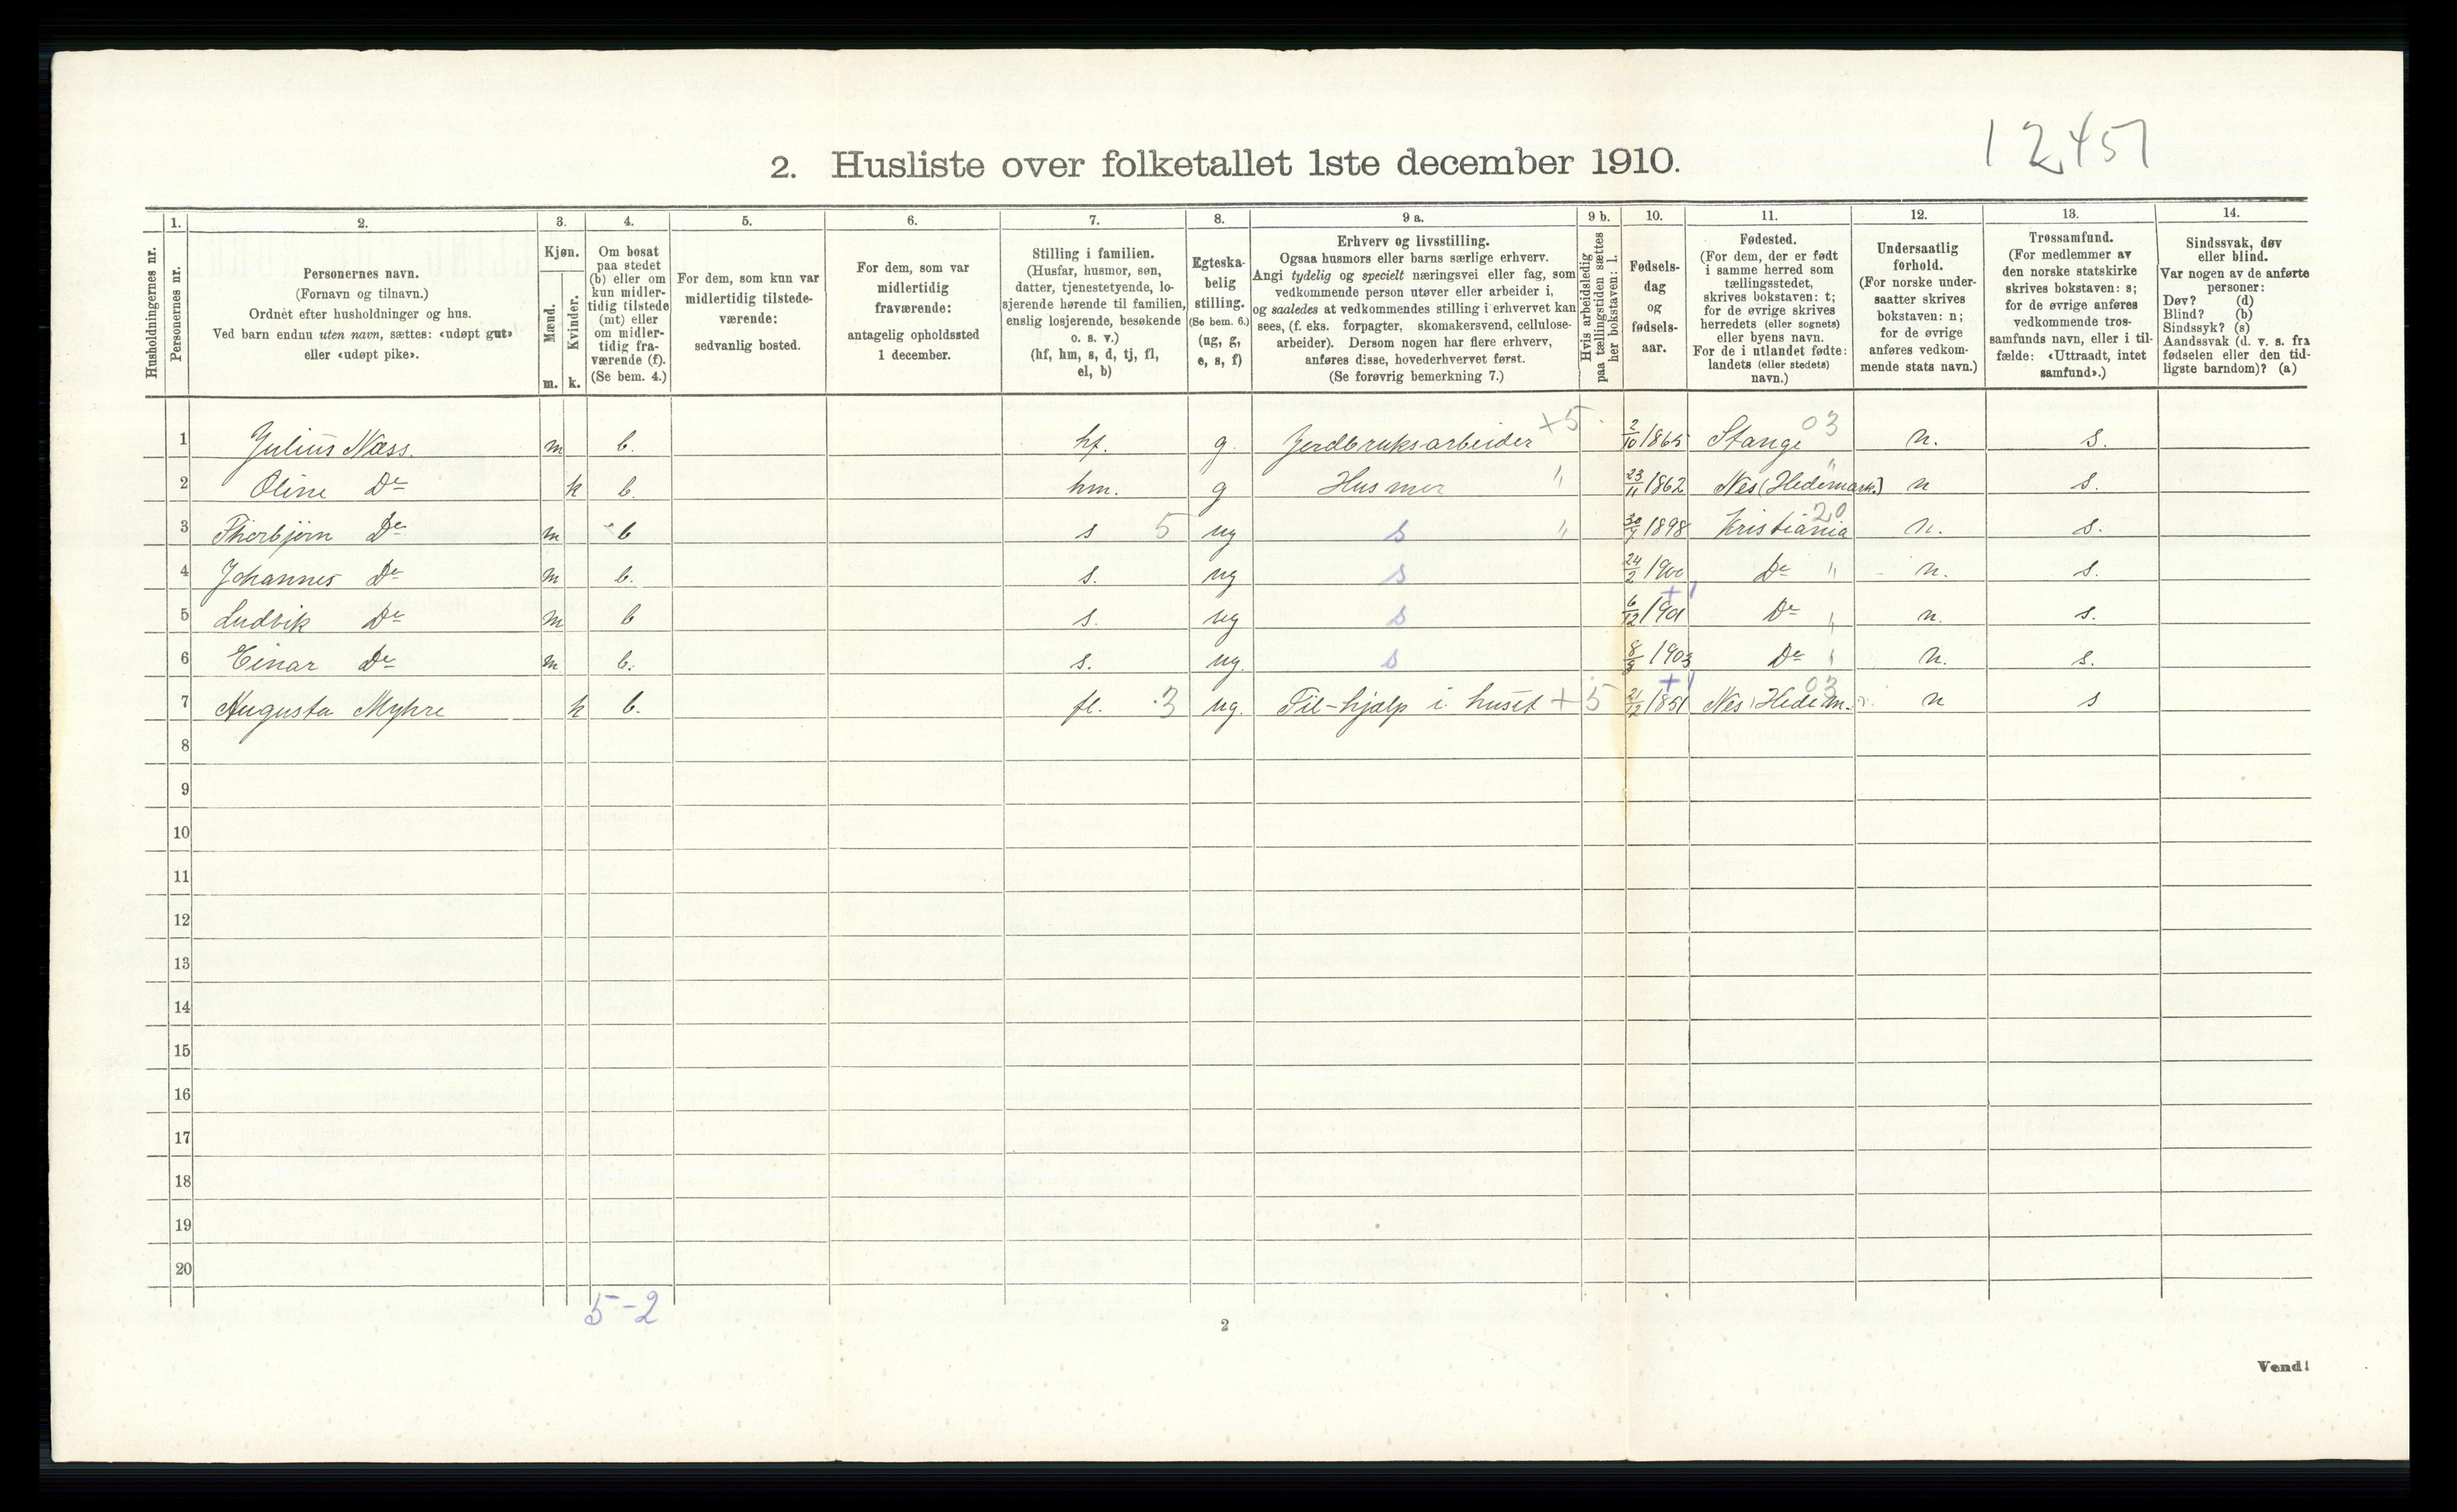 12457
2. Husliste over folketallet 1ste december 1910.
Husholdningernes nr.
1.
Personernes nr.
2.
Personernes navn.
(Fornavn og tilnavn.)
Ordnet efter husholdninger og hus.
Ved barn endnu uten navn, sættes: «udøpt gut»
eller «udøpt pike».
3.
Kjøn.
Mænd.
Kvinder.
m. k.
4.
Om bosat
paa stedet
(b) eller om
kun midler-
tidig tilstede
(mt) eller
om midler-
tidig fra-
værende (f).
(Se bem. 4.)
5.
For dem, som kun var
midlertidig tilstede-
værende:
sedvanlig bosted.
6.
For dem, som var
midlertidig
fraværende:
antagelig opholdssted
1 december.
7.
Stilling i familien.
(Husfar, husmor, søn,
datter, tjenestetyende, lo-
sjerende hørende til familien,
enslig losjerende, besøkende
o. s. v.)
(hf, hm, s, d, tj, fl,
el, b)
8.
Egteska-
belig
stilling.
(Se bem. 6.)
(ug, g,
e, s, f)
9 a.
Erhverv og livsstilling.
Ogsaa husmors eller barns særlige erhverv.
Angi tydelig og specielt næringsvei eller fag, som
vedkommende person utøver eller arbeider i,
og saaledes at vedkommendes stilling i erhvervet kan
sees, (f. eks. forpagter, skomakersvend, cellulose-
arbeider). Dersom nogen har flere erhverv,
anføres disse, hovederhvervet først.
(Se forøvrig bemerkning 7.)
9 b.
Hvis arbeidsledig
paa tællingstiden sættes
her bokstaven: l.
10.
Fødsels-
dag
og
fødsels-
aar.
11.
Fødested.
(For dem, der er født
i samme herred som
tællingsstedet,
skrives bokstaven: t;
for de øvrige skrives
herredets (eller sognets)
eller byens navn.
For de i utlandet fødte:
landets (eller stedets)
navn.)
12.
Undersaatlig
forhold.
(For norske under-
saatter skrives
bokstaven: n;
for de øvrige
anføres vedkom-
mende stats navn.)
13.
Trossamfund.
(For medlemmer av
den norske statskirke
skrives bokstaven: s;
for de øvrige anføres
vedkommende tros-
samfunds navn, eller i til-
fælde: «Uttraadt, intet
samfund».)
14.
Sindssvak, døv
eller blind.
Var nogen av de anførte
personer:
Døv? (d)
Blind? (b)
Sindssyk? (s)
Aandssvak (d. v. s. fra
fødselen eller den tid-
ligste barndom)? (a)
1 Julius Næss. m b. hf. g. Jordbruksarbeider +5 2/10 1865 Stange 03 n. s.
2 Oline Do k b. hm. g Husmor " 23/11 1862 Nes (Hedemark.) " n s.
3 Thorbjørn Do m b s 5 ug s " 30/7 1898 Kristiania 20 n. s.
4 Johannes Do m b. s. ug s 24/2 1900 Do " n. s.
5 Ludvik Do m b s. ug s 6/12 1901 +1 Do " n. s.
6 Einar Do m b. s. ug. s 8/3 1903 Do " n. s.
7 Augusta Myhre k b. fl. 3 ug. Til-hjælp i huset +5 21/12 1851 +1 Nes (Hedem.) 03 n s
8
9
10
11
12
13
14
15
16
17
18
19
20
5-2
2
Vend!